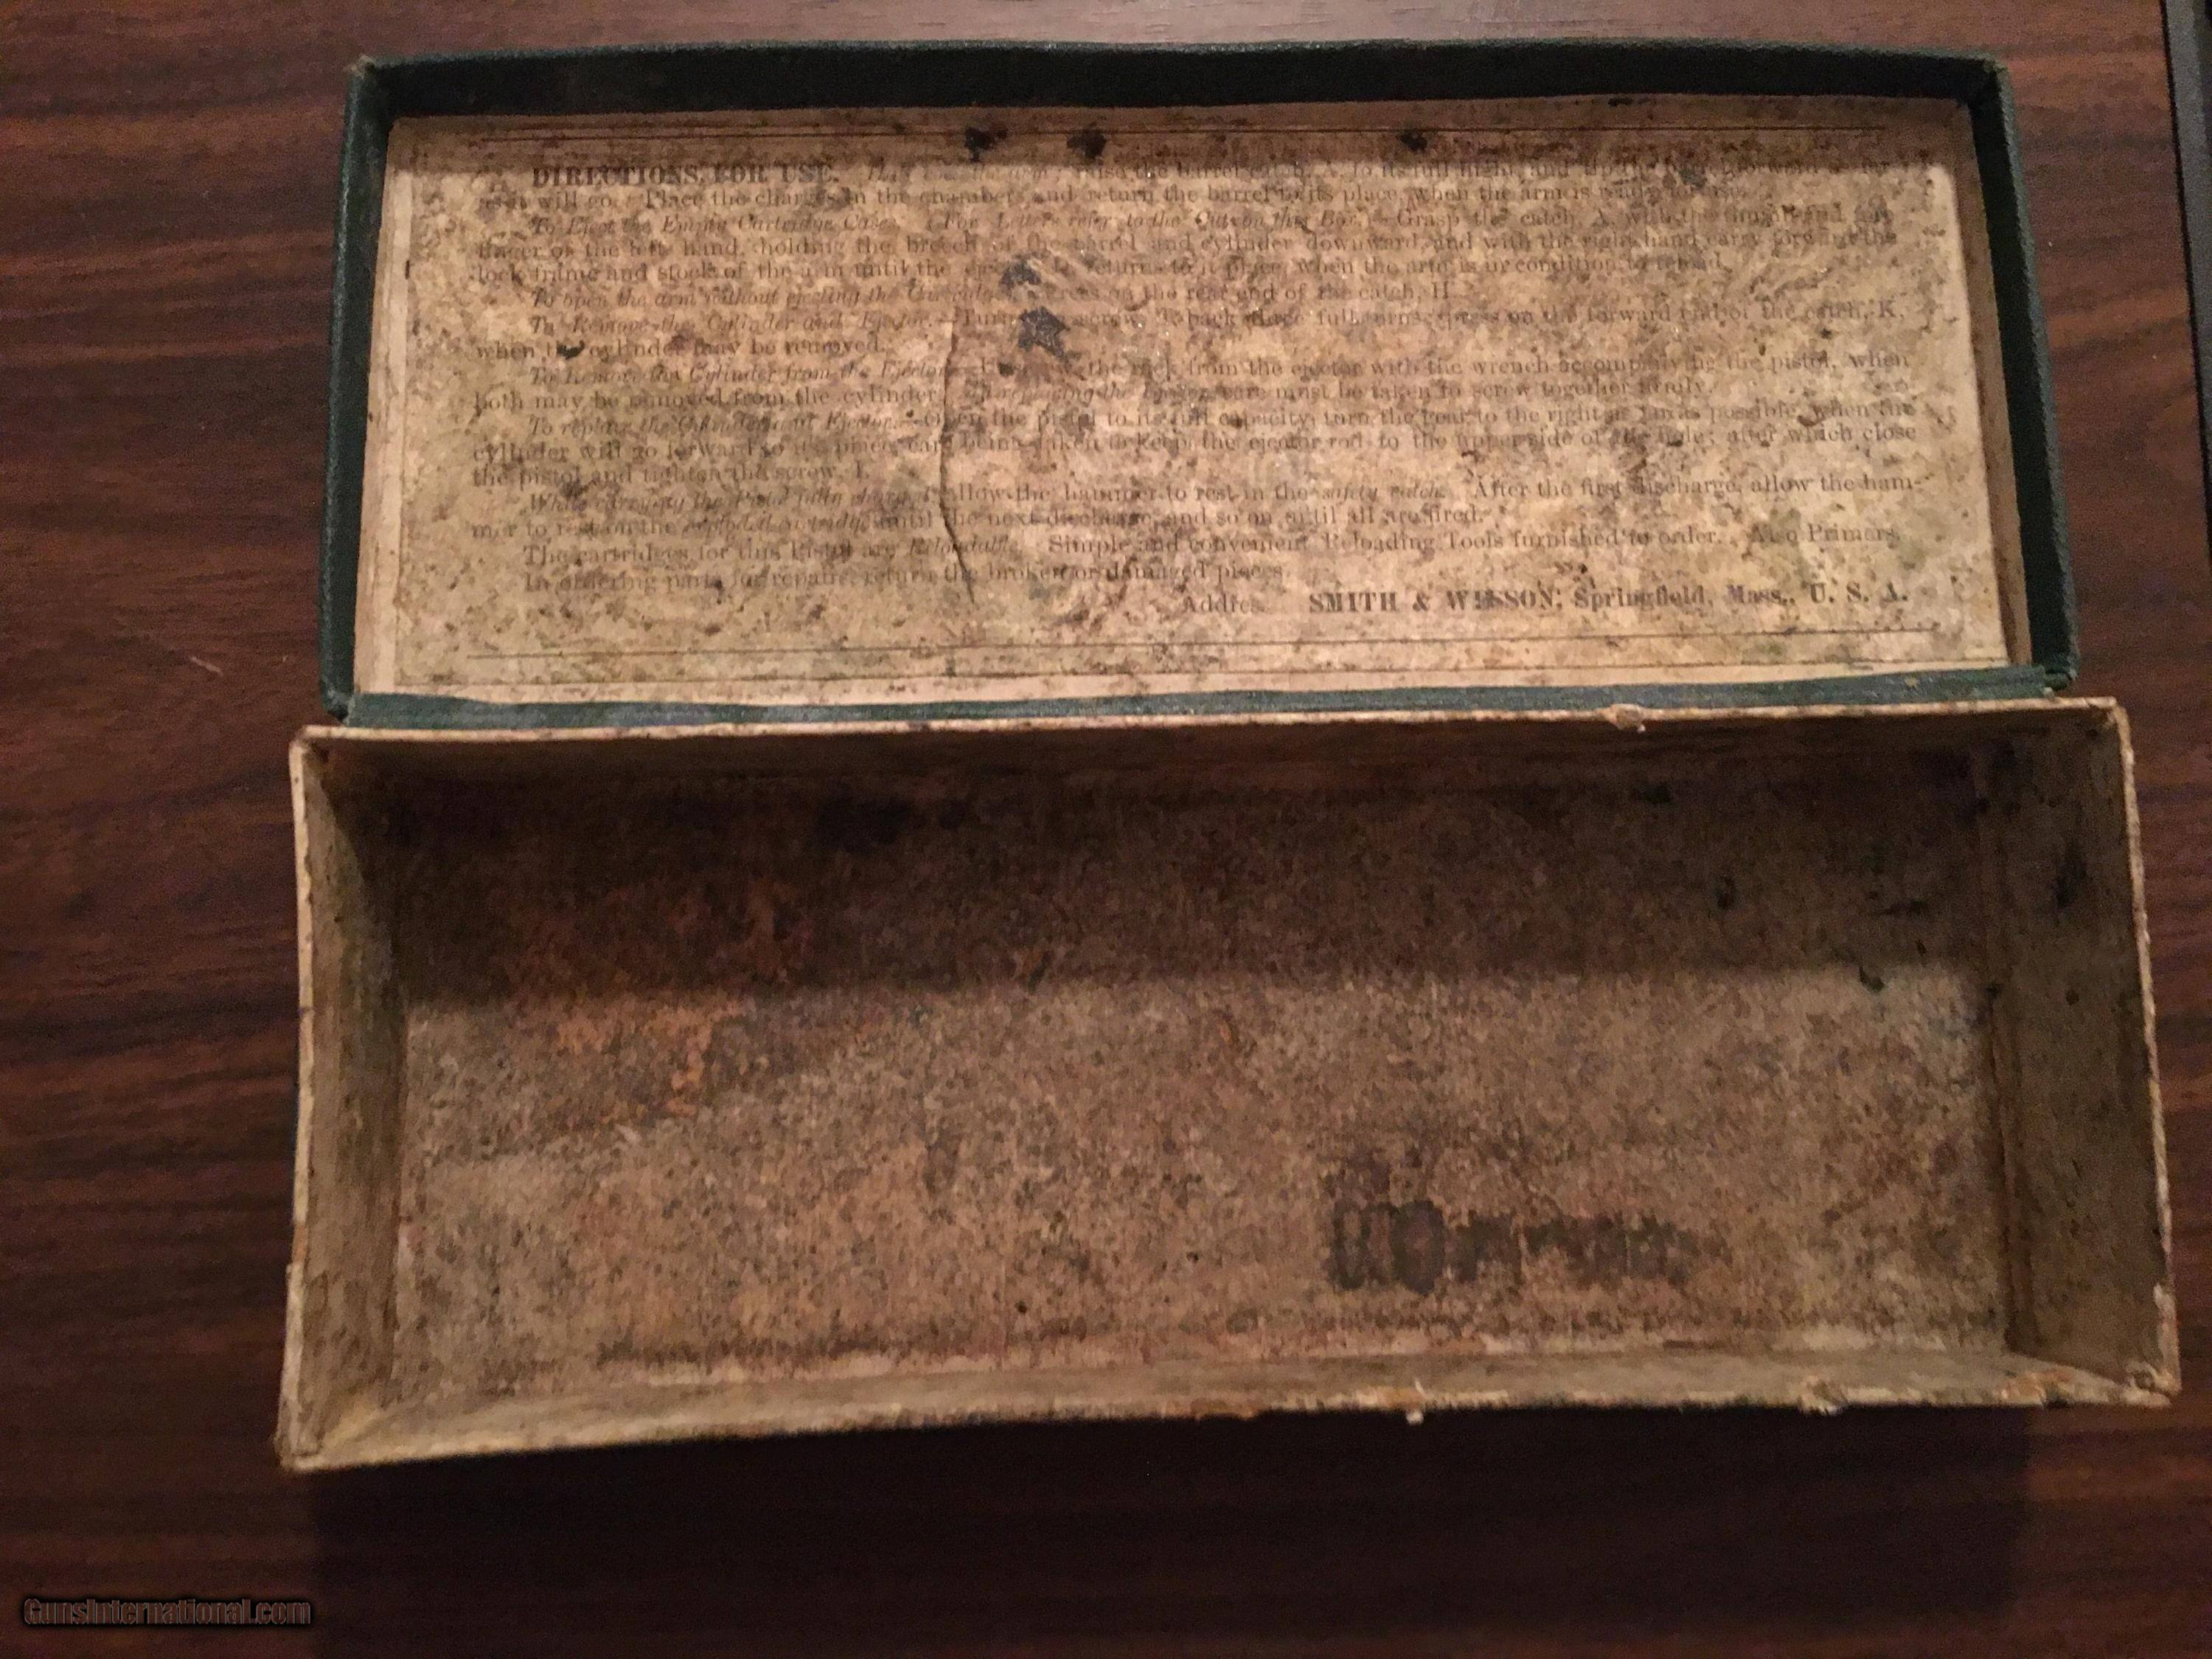 DIRECTIONS FOR USE. raise the barrel catch, A, to its full hight, and tip the forward as far
as it will go. Place the charges in the chambers and return the barrel to its place, when the arm is ready for use.
To Eject the Empty Cartridge Cases. (For Letters refer to the Cut on this Box.) Grasp the catch, A, with the thumb and fore
finger of the left hand, holding the breech of the barrel and cylinder downward, and with the right hand carry forward the
lock frame and stock of the arm until the returns to its place, when the arm is in condition to reload.
To open the arm without ejecting the Cartridges press on the rear end of the catch, H.
To Remove the Cylinder and Ejector.—Turn screw back three full turns, press on the forward end of the catch, K,
when the cylinder may be removed.
To Remove the Cylinder from the Ejector. the rack from the ejector with the wrench accompanying the pistol, when
both may be removed from the cylinder. In replacing the Ejector, care must be taken to screw together firmly.
To replace the Cylinder and Ejector.—Open the pistol to its full capacity, turn the gear to the right as far as possible, when the
cylinder will go forward to its place, care being taken to keep the ejector rod to the upper side of the hole; after which close
the pistol and tighten the screw, I.
While carrying the Pistol fully charged, allow the hammer to rest in the safety catch. After the first discharge, allow the ham-
mer to rest on the exploded cartridge until the next discharge, and so on until all are fired.
The cartridges for this Pistol are Reloadable. Simple and convenient Reloading Tools furnished to order. Also Primers.
In ordering parts for repairs, return the broken or damaged pieces.
Address SMITH & WESSON, Springfield, Mass., U. S. A.
GunsInternational.com